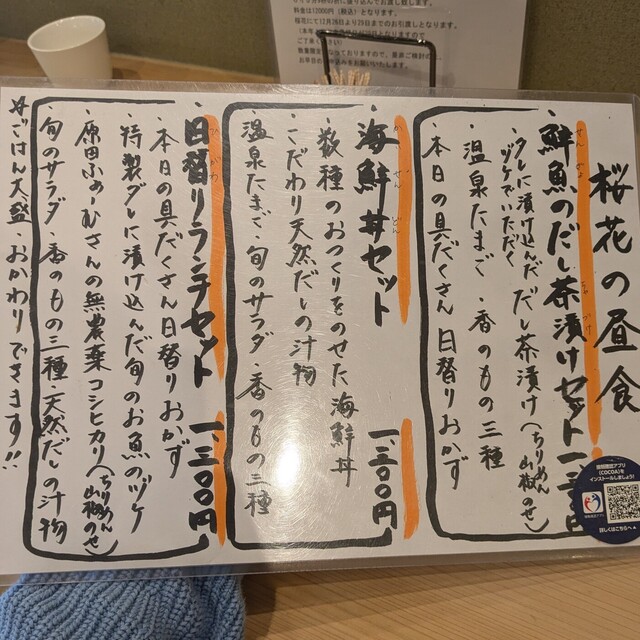 料金は12000円（税込）となります。
桜花にて12月28日より29日までのお引渡しとなります。
ご了承ください
桜花の昼食
せんぎょ
鮮魚のだし茶漬けセット
タレに漬け込んだ
ヅケでいただく
だし茶漬け（ちりめん山椒のせ）
・温泉たまご・香のもの三種
本日の具だくさん日替りおかず
かいせんどん
・海鮮丼セット 一、三〇〇円
・数種のおつくりをのせた海鮮丼
・こだわり天然だしの汁物
温泉たまご・旬のサラダ・香のもの三種
・日替りランチセット 一、三〇〇円
・本日の具だくさん日替りおかず
・特製ダレに漬け込んだ旬のお魚のヅケ
・原田ふぁーむさんの無農薬コシヒカリ（ちりめん山椒のせ）
旬のサラダ・香のもの三種・天然だしの汁物
☆ごはん大盛・おかわりできます!!
接触確認アプリ
(COCOA)を
インストールしましょう!
詳しくはこちらへ▲